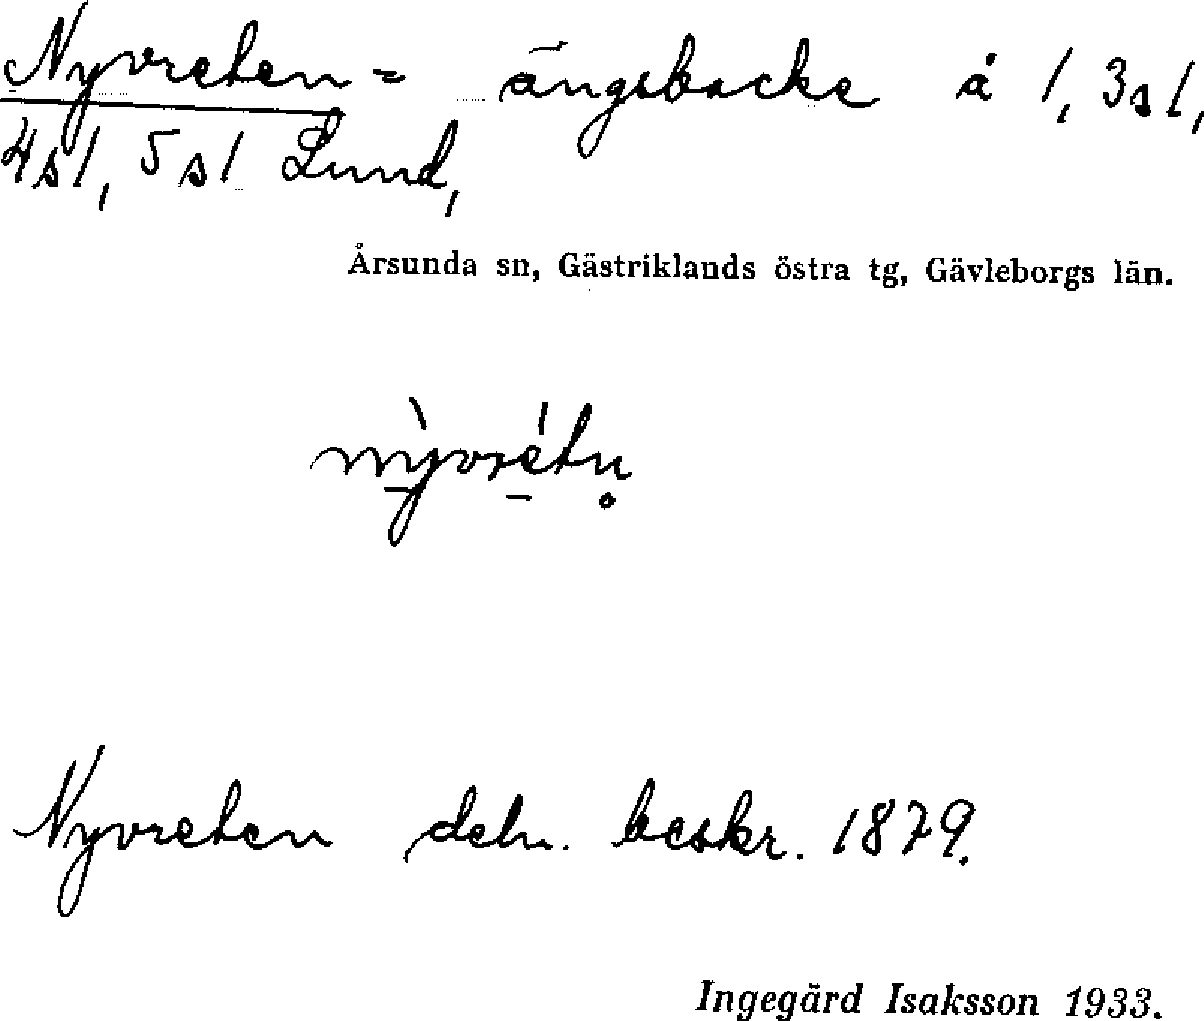 Nyvreten = ängsbacke å 1, 3s1,
4s1, 5s1 Lund,
Årsunda sn, Gästriklands östra tg, Gävleborgs län.
nỳvrétn̥
Nyvreten deln. beskr. 1879.
Ingegärd Isaksson 1933.